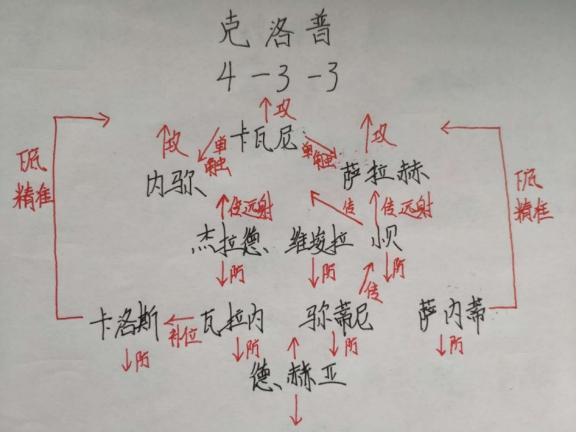 克洛普
4-3-3
攻
攻 单触 卡瓦尼 单触 攻
内弥 萨拉赫
底 精准 底 精准
传远射 传 传远射
杰拉德 维埃拉 小贝
防 防 防
传
卡洛斯 补位 瓦拉内 弥蒂尼 萨内蒂
防 防 防 防
德赫亚